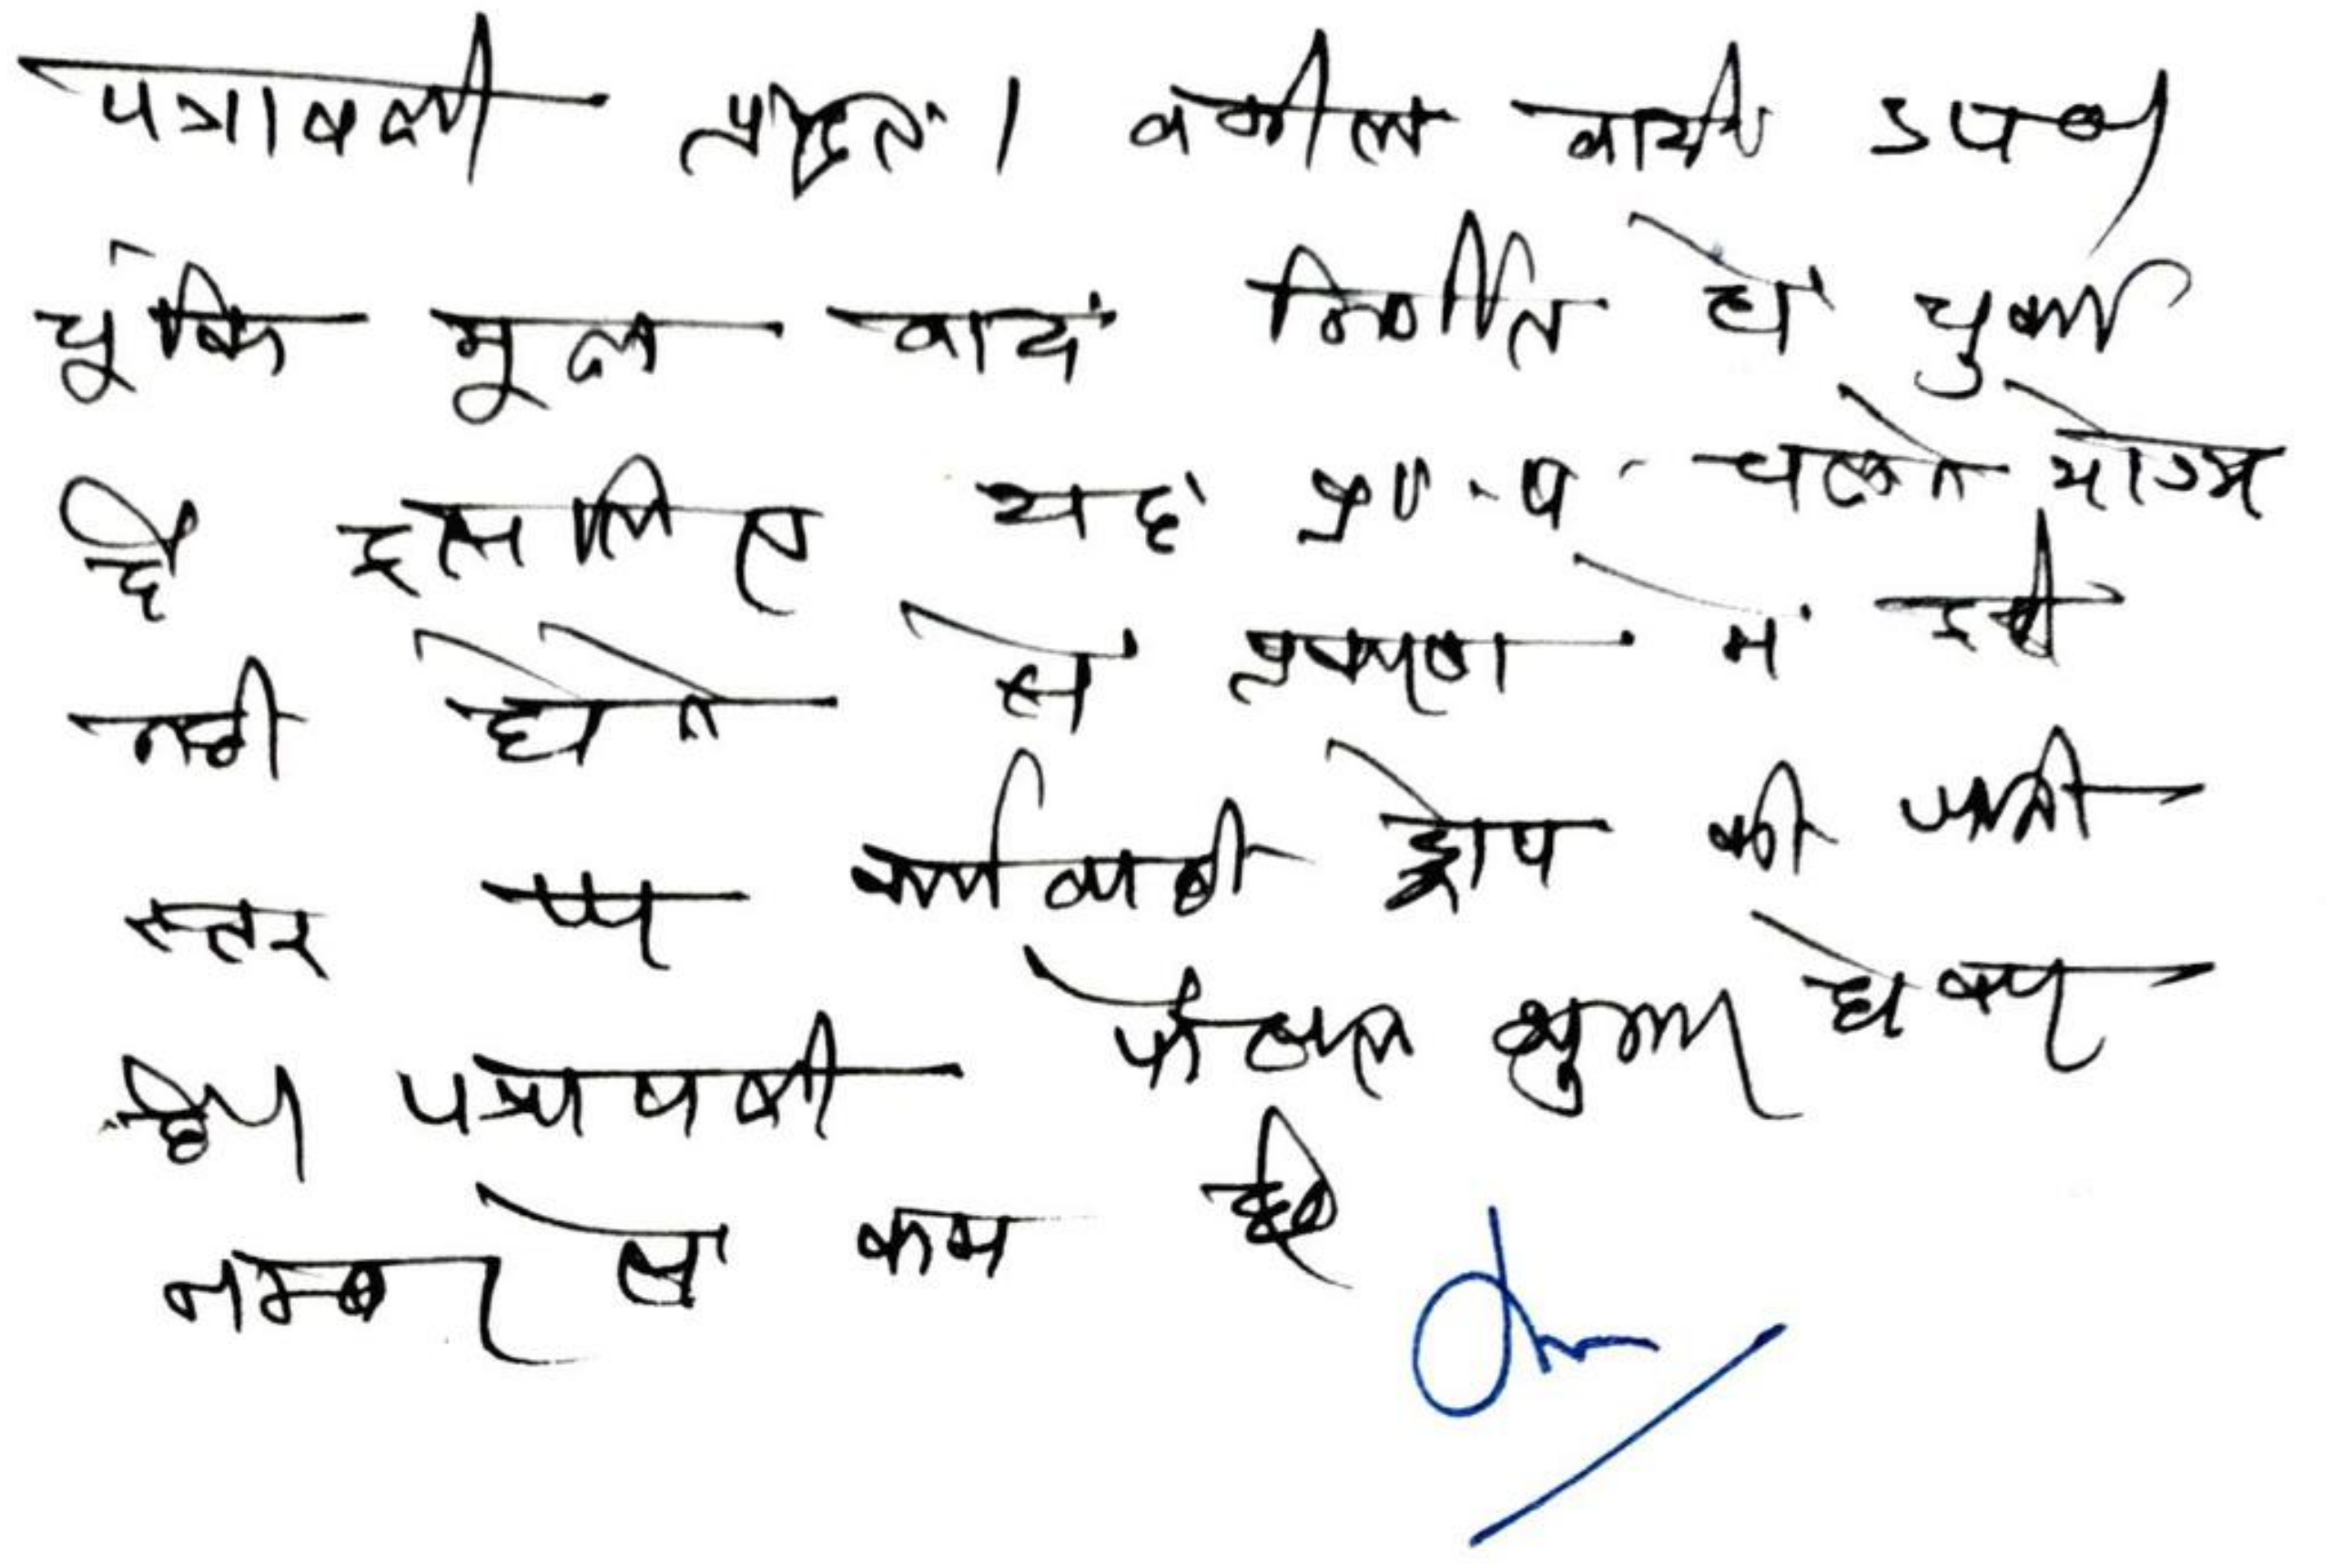 पत्रावली प्रस्तुत। वकील वादी उप०
चूंकि मूल वाद निर्णित हो चुका
है इसलिए यह प्रा.प. चलने योग्य
नही होने से प्रकरण में इसी
स्तर पर कार्यवाही ड्रोप की जाती
है। पत्रावली फैसल शुमार होकर
नम्बर से कम हो